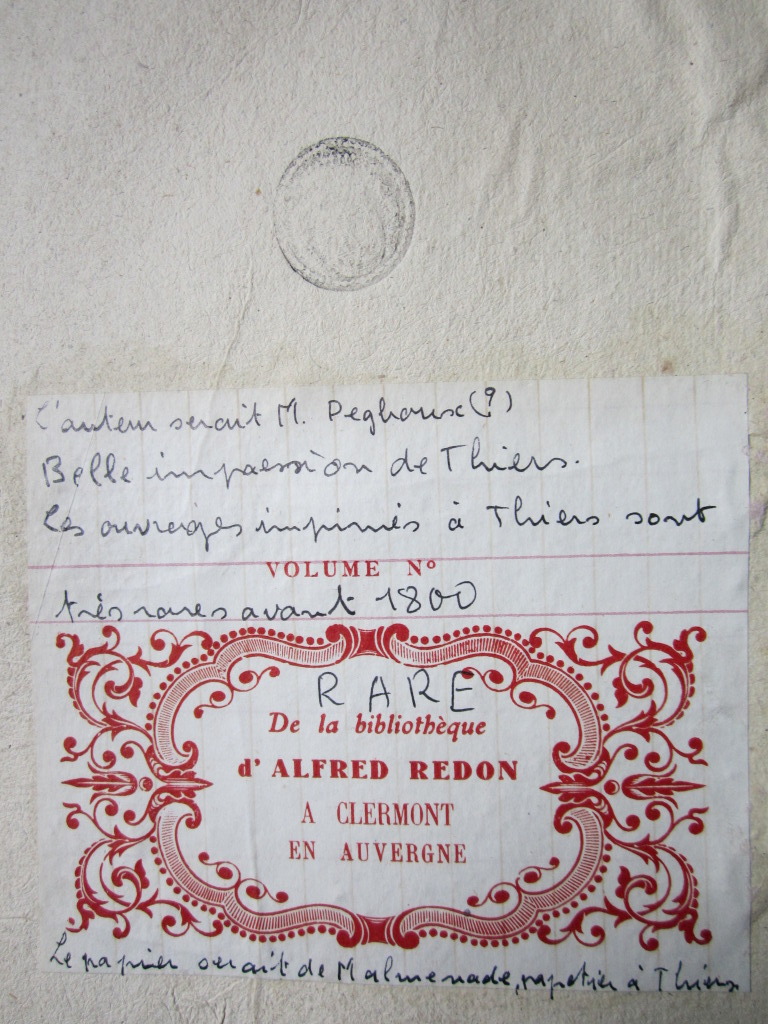 L'auteur serait M. Peghoux (?)
Belle impression de Thiers.
Les ouvrages imprimés à Thiers sont
VOLUME N°
très rares avant 1800
RARE
De la bibliothèque
d' ALFRED REDON
A CLERMONT
EN AUVERGNE
Le papier serait de Malmenade, papetier à Thiers